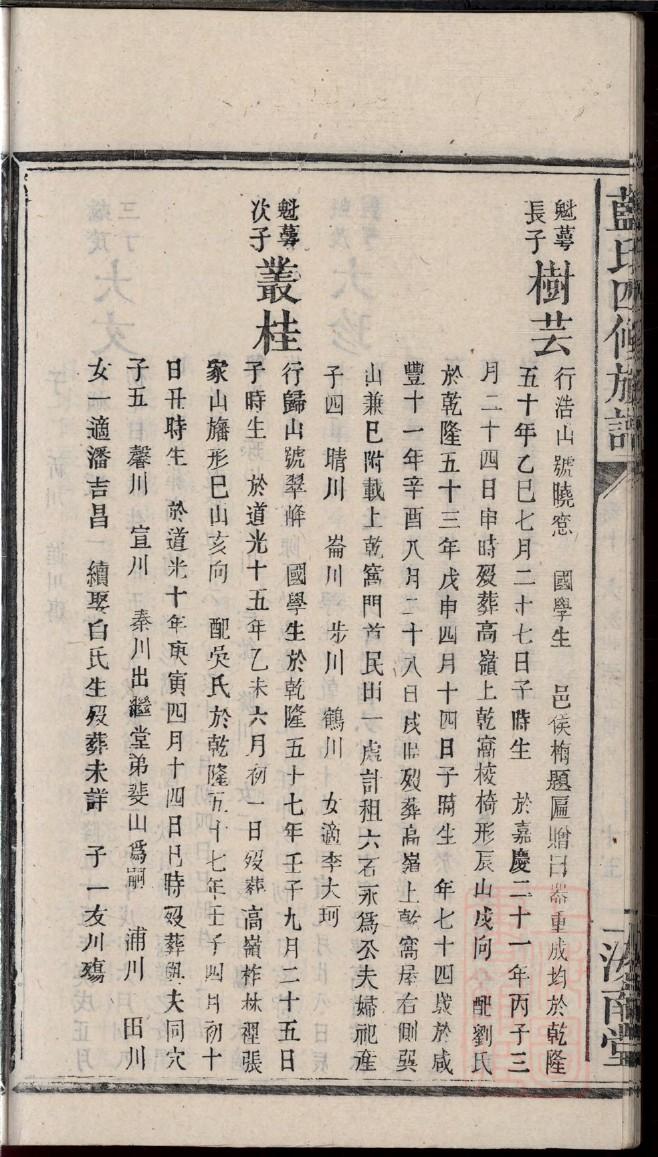 藍氏四修族譜
汝南堂
魁蕚
長子
樹芸
行浩山號曉窓 國學生 邑侯梅題匾贈曰器重成均於乾隆
五十年乙巳七月二十七日子時生 於嘉慶二十一年丙子三
月二十四日申時歿葬高嶺上乾窩棱椅形辰山戍向 配劉氏
於乾隆五十三年戊申四月十四日子時生 年七十四歲於咸
豐十一年辛酉八月二十八日戌時歿葬高嶺上乾窩屋右側巽
山兼巳附載上乾窩門首民田一處計租六石永爲公夫婦祀產
子四 晴川 崙川 步川 鶴川 女適李大珂
魁蕚
次子
叢桂
行歸山號翠峰 國學生於乾隆五十七年壬子九月二十五日
子時生 於道光十五年乙未六月初一日歿葬高嶺柞林裡張
家山旛形巳山亥向 配吳氏於乾隆五十七年壬子四月初十
日丑時生 於道光十年庚寅四月十四日巳時歿葬與夫同穴
子五 馨川 宣川 秦川出繼堂弟斐山爲嗣 浦川 田川
女一適潘吉昌 續娶白氏生歿葬未詳 子一友川殤